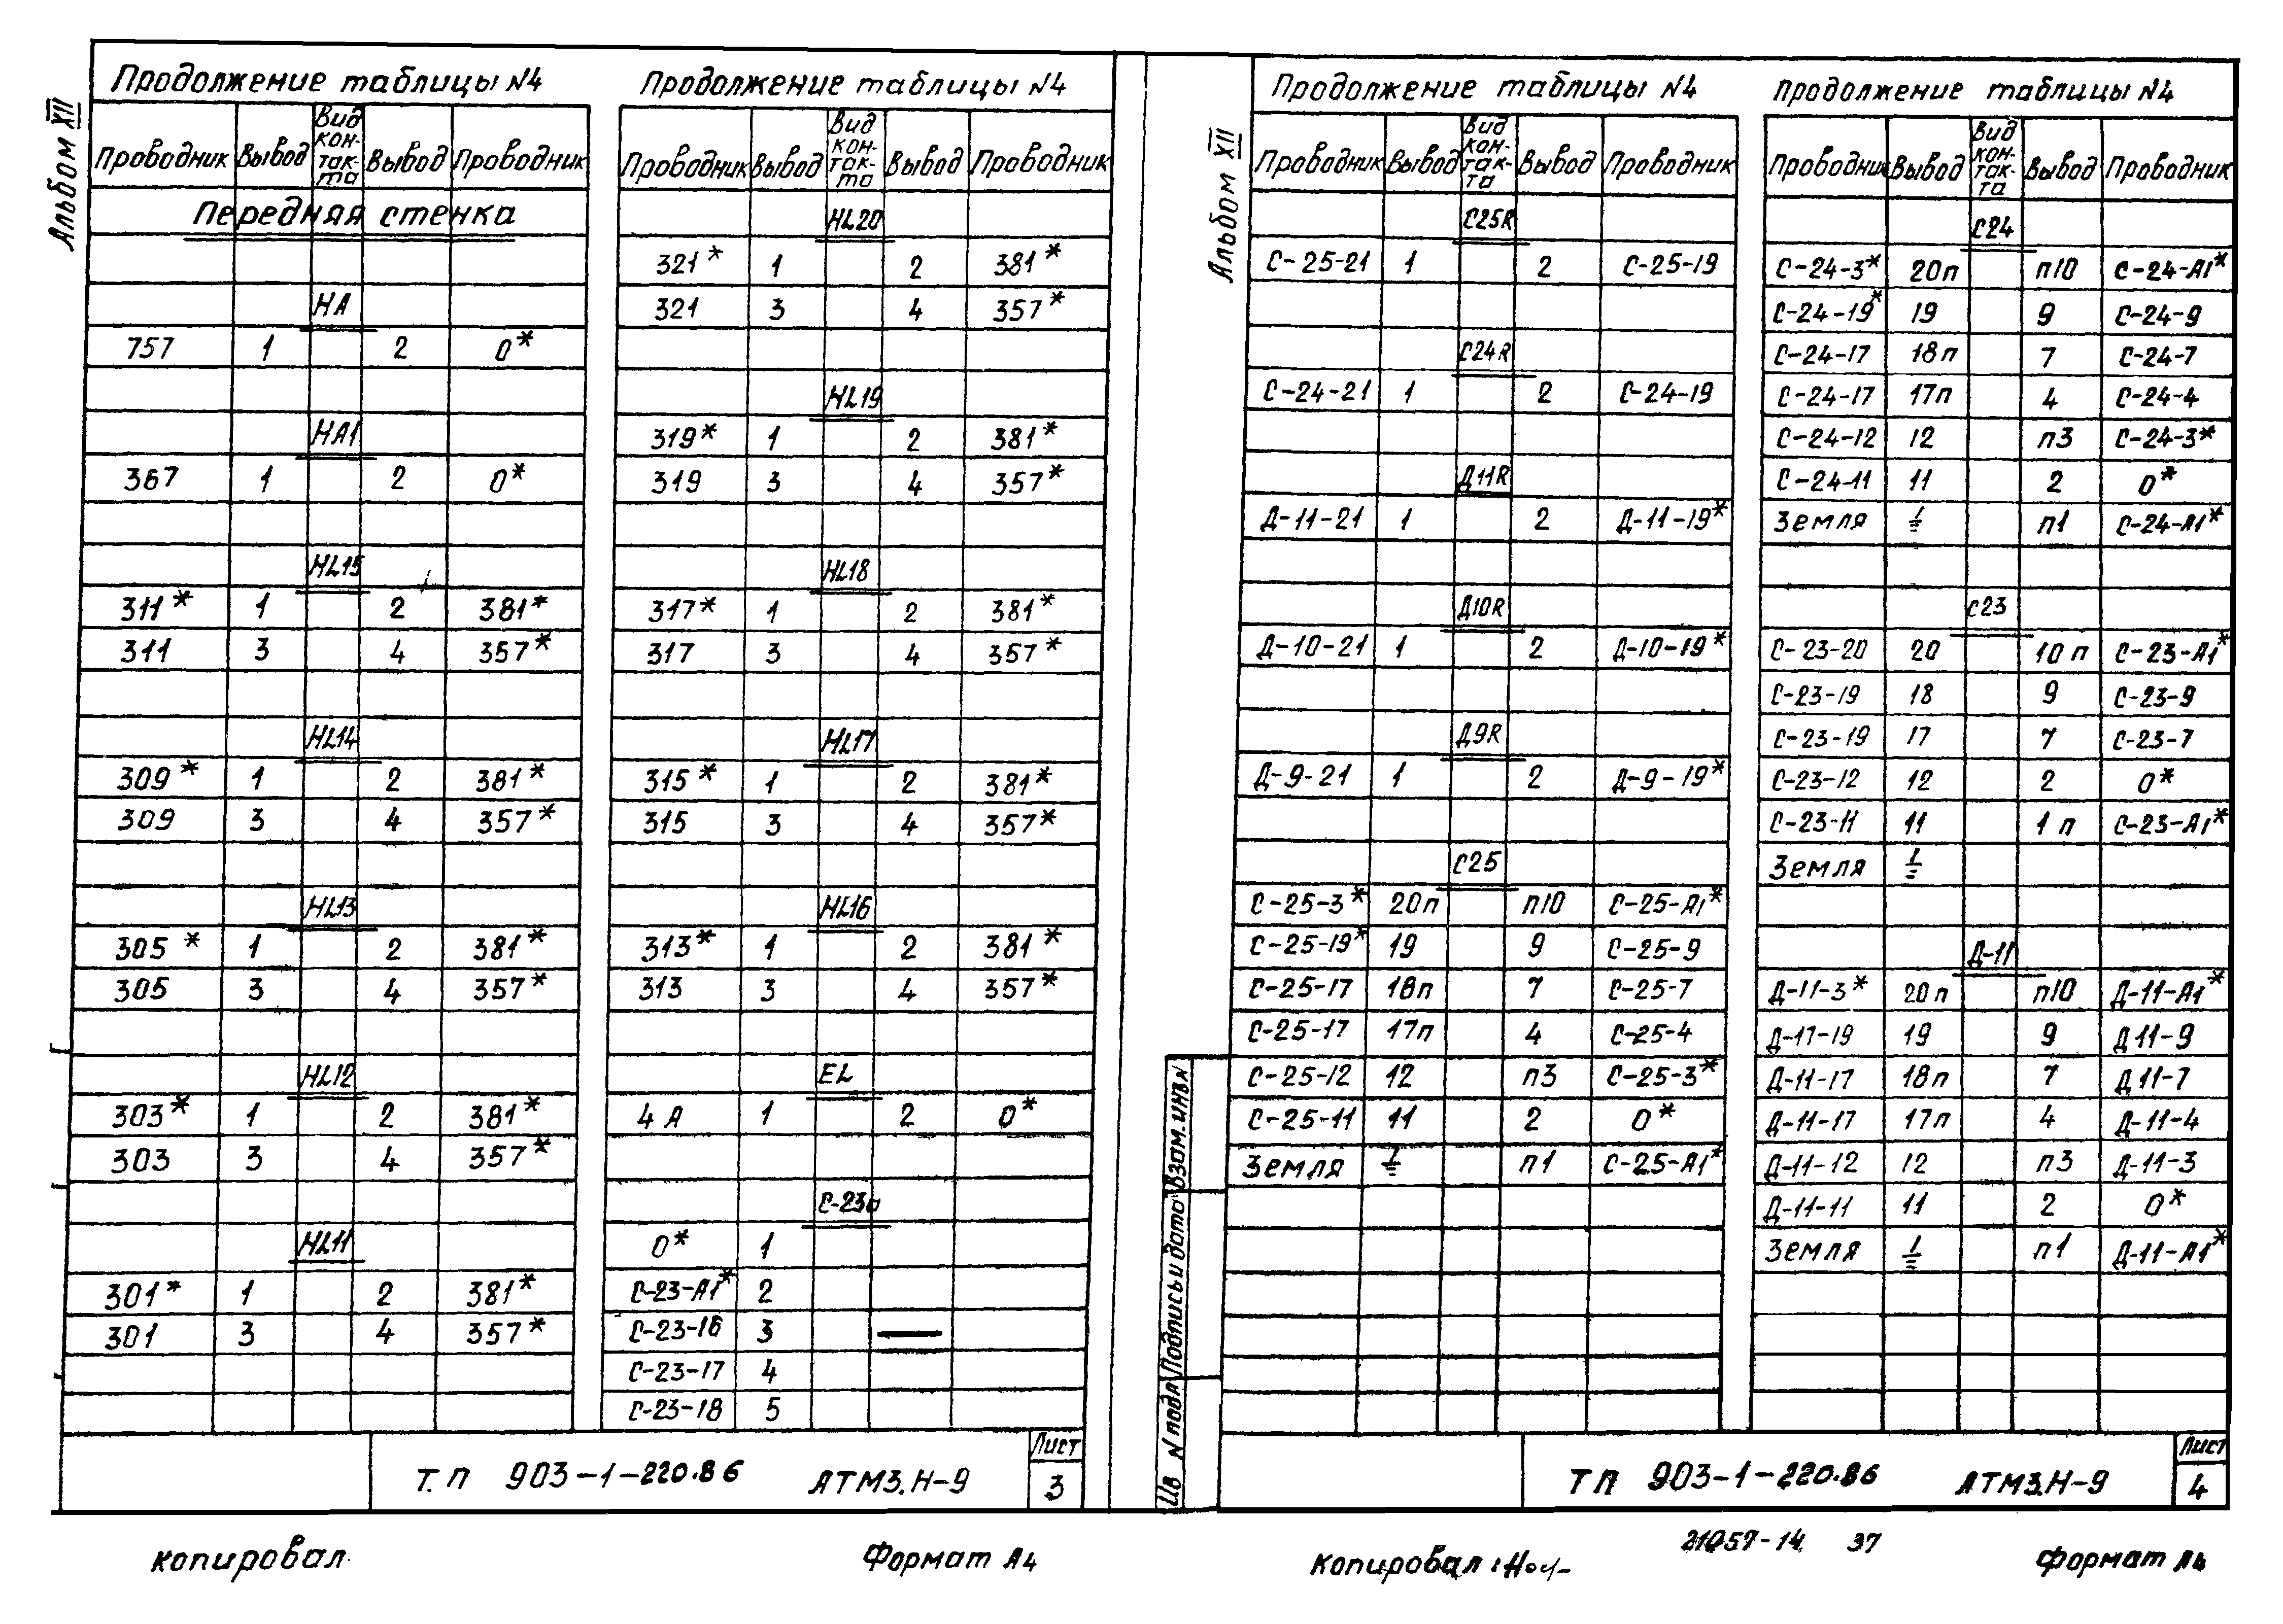 Альбом XII
Продолжение таблицы N4
Проводник Вывод Вид кон-так-та Вывод Проводник
Передняя стенка
НА
757 1 2 0*
НА1
367 1 2 0*
HL15
311* 1 2 381*
311 3 4 357*
HL14
309* 1 2 381*
309 3 4 357*
HL13
305* 1 2 381*
305 3 4 357*
HL12
303* 1 2 381*
303 3 4 357*
HL11
301* 1 2 381*
301 3 4 357*
Продолжение таблицы N4
Проводник Вывод Вид кон-так-та Вывод Проводник
HL20
321* 1 2 381*
321 3 4 357*
HL19
319* 1 2 381*
319 3 4 357*
HL18
317* 1 2 381*
317 3 4 357*
HL17
315* 1 2 381*
315 3 4 357*
HL16
313* 1 2 381*
313 3 4 357*
EL
4А 1 2 0*
С-23а
0* 1
С-23-А1* 2
С-23-16 3 —
С-23-17 4
С-23-18 5
Т.П 903-1-220.86 АТМ3.Н-9
Лист
3
копировал
Формат А4
Альбом XII
Продолжение таблицы N4
Проводник Вывод Вид кон-так-та Вывод Проводник
С25R
С-25-21 1 2 С-25-19
С24R
С-24-21 1 2 С-24-19
Д11R
Д-11-21 1 2 Д-11-19*
Д10R
Д-10-21 1 2 Д-10-19*
Д9R
Д-9-21 1 2 Д-9-19*
С25
С-25-3* 20п п10 С-25-А1*
С-25-19* 19 9 С-25-9
С-25-17 18п 7 С-25-7
С-25-17 17п 4 С-25-4
С-25-12 12 п3 С-25-3*
С-25-11 11 2 0*
Земля ⏚ п1 С-25-А1*
Продолжение таблицы N4
Проводник Вывод Вид кон-так-та Вывод Проводник
С24
С-24-3* 20п п10 С-24-А1*
С-24-19* 19 9 С-24-9
С-24-17 18п 7 С-24-7
С-24-17 17п 4 С-24-4
С-24-12 12 п3 С-24-3*
С-24-11 11 2 0*
Земля ⏚ п1 С-24-А1*
С23
С-23-20 20 10п С-23-А1*
С-23-19 18 9 С-23-9
С-23-19 17 7 С-23-7
С-23-12 12 2 0*
С-23-11 11 1п С-23-А1*
Земля ⏚
Д-11
Д-11-3* 20п п10 Д-11-А1*
Д-17-19 19 9 Д11-9
Д-11-17 18п 7 Д11-7
Д-11-17 17п 4 Д-11-4
Д-11-12 12 п3 Д-11-3
Д-11-11 11 2 0*
Земля ⏚ п1 Д-11-А1*
Взам. инв N
Подпись и дата
N подл
ТП 903-1-220.86 АТМ3.Н-9
Лист
4
копировал:
21057-14 37
Формат А4